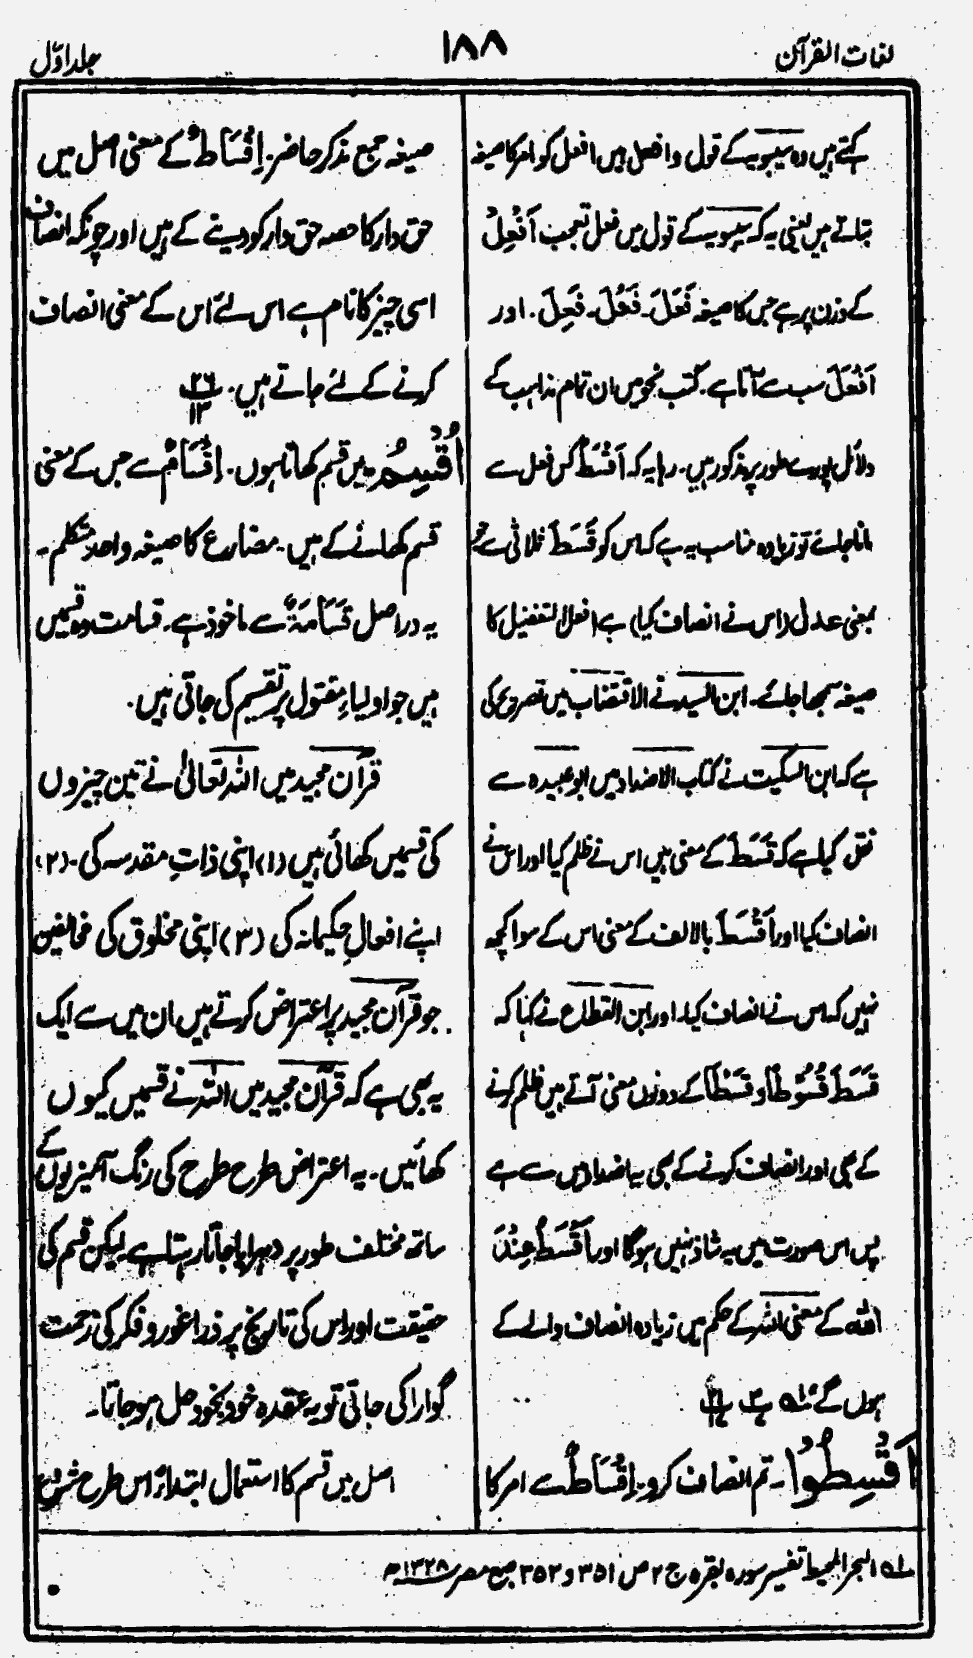 لغات القرآن
١٨٨
جلد اوّل
کہتے ہیں وہ سیبویہ کے قول و افعل ہیں افعل کو امر کا صیغہ
بتاتے ہیں یعنی یہ کہ سیبویہ کے قول میں فعل تعجب اَفْعِلْ
کے وزن پر ہے جس کا صیغہ فَعَلَ۔ فَعُلَ۔ فَعِلَ۔ اور
اَفْعَلَ سب سے آتا ہے۔ کتب نحو میں ان تمام مذاہب کے
دلائل پورے طور پر مذکور ہیں۔ رہا یہ کہ اَقْسَطُ کس فعل سے
مانا جائے تو زیادہ مناسب یہ ہے کہ اس کو قَسَطَ ثلاثی سے جو
بمعنی عدل (اس نے انصاف کیا) ہے افعل التفضیل کا
صیغہ سمجھا جائے۔ ابن السید نے الاقتضاب میں تصریح کی
ہے کہ ابن السکیت نے کتاب الاضداد میں ابو عبیدہ سے
نقل کیا ہے کہ قَسَطَ کے معنی ہیں اس نے ظلم کیا اور اس نے
انصاف کیا اور اَقْسَطَ بالالف کے معنی اس کے سوا کچھ
نہیں کہ اس نے انصاف کیا۔ اور ابن القطاع نے کہا کہ
قَسَطَ قُسُوْطًا و قَسْطًا کے دونوں معنی آتے ہیں ظلم کرنے
کے بھی اور انصاف کرنے کے بھی یہ اضداد میں سے ہے
پس اس صورت میں یہ شاذ نہیں ہوگا اور اَقْسَطُ عِنْدَ
اللہ کے معنی اللہ کے حکم میں زیادہ انصاف والے کے
ہوں گے
اَقْسِطُوْا۔ تم انصاف کرو۔ اِقْسَاطٌ سے امر کا
صیغہ جمع مذکر حاضر۔ اِقْسَاطٌ کے معنی اصل میں
حق دار کا حصہ حق دار کو دینے کے ہیں اور چونکہ انصاف
اسی چیز کا نام ہے اس لئے اس کے معنی انصاف
کرنے کے لئے جاتے ہیں۔ ٢٦ ١٣
اُقْسِمُ میں قسم کھاتا ہوں۔ اِقْسَامٌ سے جس کے معنی
قسم کھانے کے ہیں۔ مضارع کا صیغہ واحد متکلم۔
یہ دراصل قَسَامَۃٌ سے ماخوذ ہے۔ قسامت وہ قسمیں
ہیں جو اولیاءِ مقتول پر تقسیم کی جاتی ہیں۔
قرآن مجید میں اللہ تعالیٰ نے تین چیزوں
کی قسمیں کھائی ہیں (١) اپنی ذاتِ مقدسہ کی۔ (٢)
اپنے افعالِ حکیمانہ کی (٣) اپنی مخلوق کی مخالفین
جو قرآن مجید پر اعتراض کرتے ہیں ان میں سے ایک
یہ بھی ہے کہ قرآن مجید میں اللہ نے قسمیں کیوں
کھائیں۔ یہ اعتراض طرح طرح کی رنگ آمیزیوں کے
ساتھ مختلف طور پر دہرایا جاتا رہتا ہے لیکن قسم کی
حقیقت اور اس کی تاریخ پر ذرا غور و فکر کی زحمت
گوارا کی جاتی تو یہ عقدہ خود بخود حل ہو جاتا۔
اصل میں قسم کا استعمال ابتداءً اس طرح شروع
لہ البحر المحیط تفسیر سورہ بقرہ ج ٢ ص ٣٥١ و ٣٥٢ طبع مصر ١٣٢٨ھ